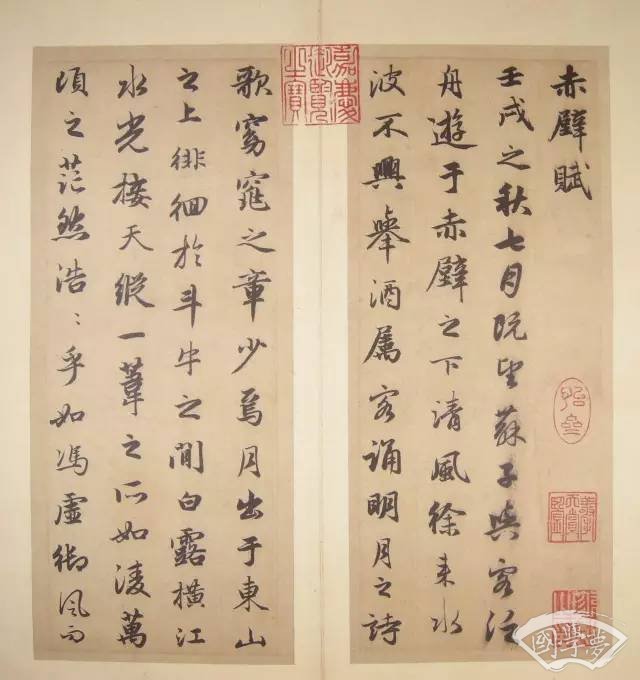 赤壁賦
壬戌之秋七月既望蘇子與客泛
舟遊于赤壁之下清風徐來水
波不興舉酒屬客誦明月之詩
歌窈窕之章少焉月出于東山
之上徘徊於斗牛之間白露橫江
水光接天縱一葦之所如淩萬
頃之茫然浩〻乎如馮虛御風而
嘉慶御覽之寶
國學夢